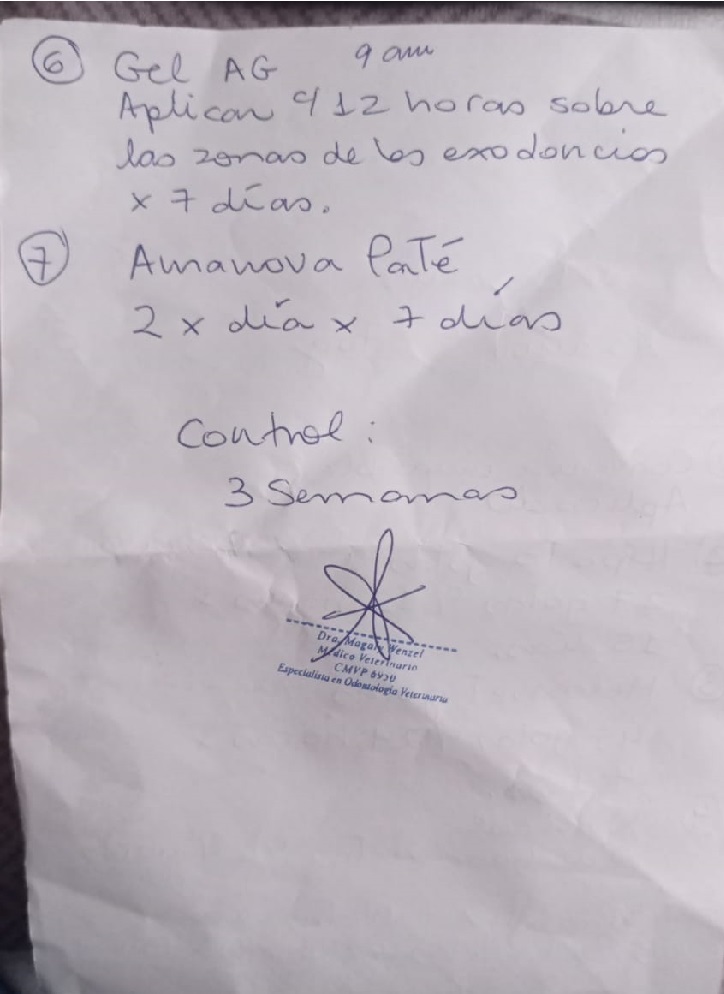 6 Gel AG 9 am
Aplicar c/ 12 horas sobre
las zonas de las exodoncias
x 7 días.
7 Amanova Paté
2 x día x 7 días
Control:
3 Semanas
Dra. Magaly Wenzel
Médico Veterinario
CMVP
Especialista en Odontología Veterinaria